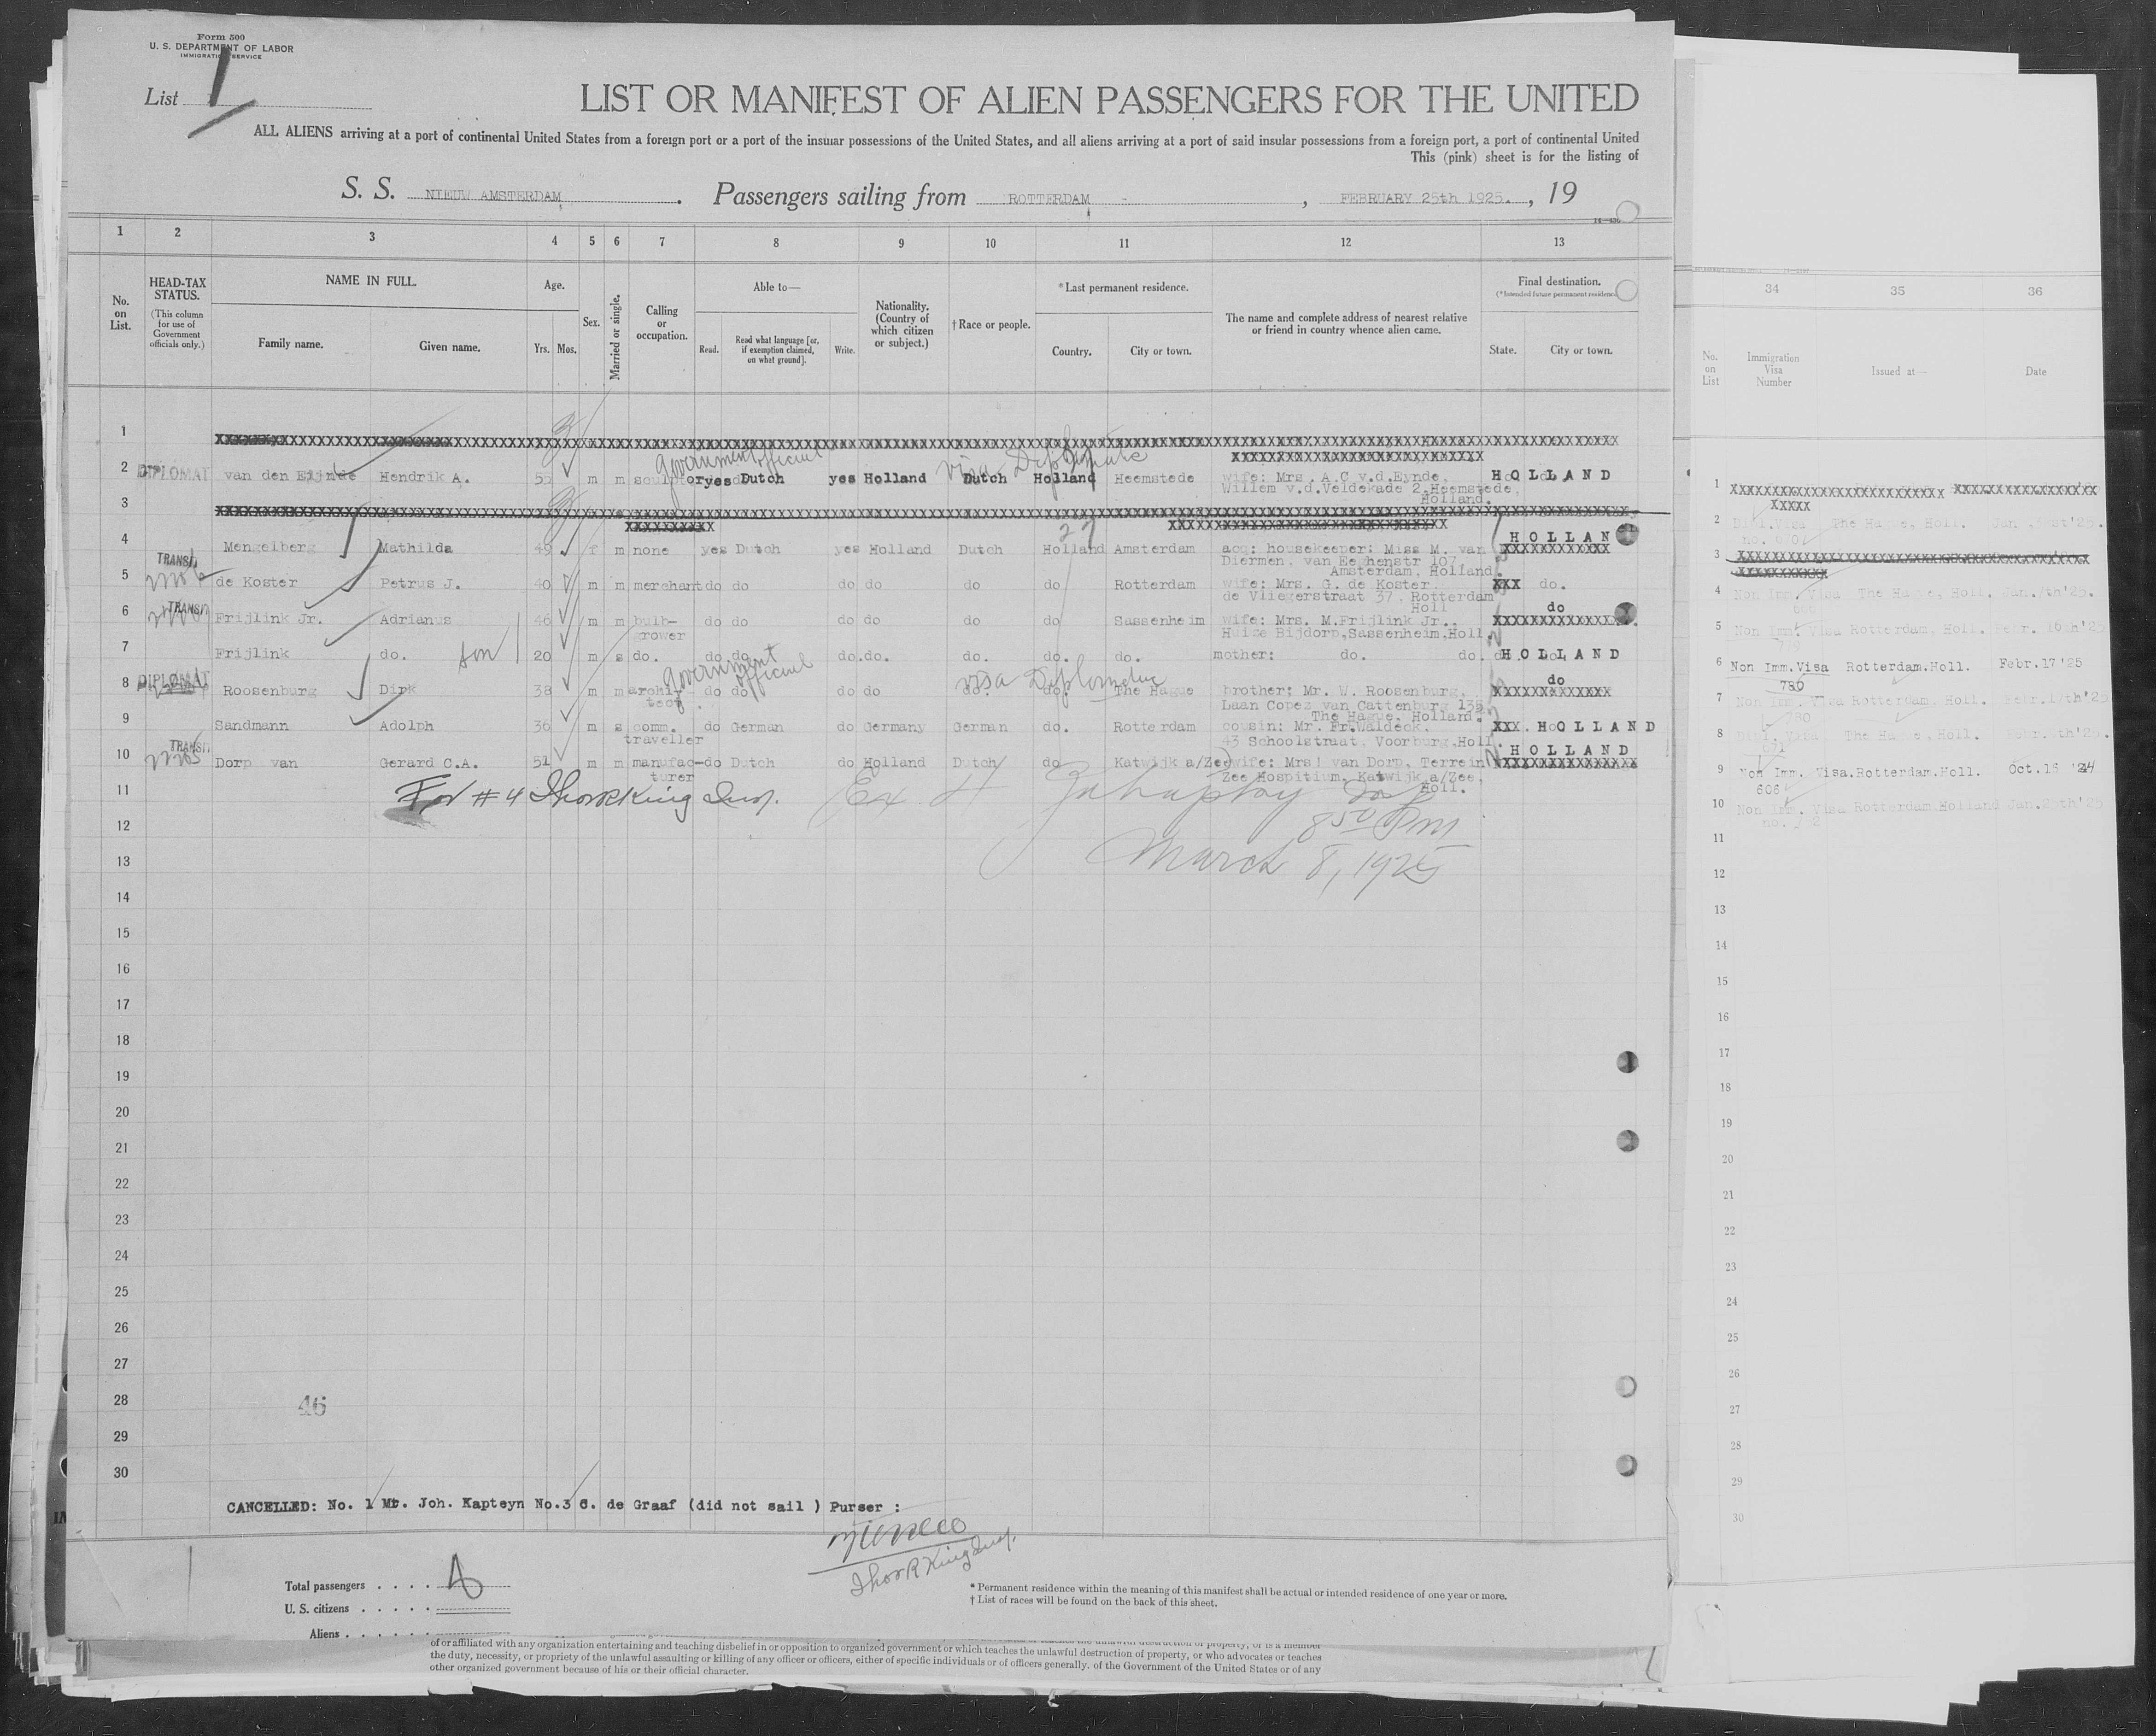 Form 500
U. S. DEPARTMENT OF LABOR
IMMIGRATION SERVICE
List 1
LIST OR MANIFEST OF ALIEN PASSENGERS FOR THE UNITED
ALL ALIENS arriving at a port of continental United States from a foreign port or a port of the insular possessions of the United States, and all aliens arriving at a port of said insular possessions from a foreign port, a port of continental United
This (pink) sheet is for the listing of
S. S. NIEUW AMSTERDAM. Passengers sailing from ROTTERDAM, FEBRUARY 25th 1925., 19
1 2 3 4 5 6 7 8 9 10 11 12 13
No. on List.
HEAD-TAX STATUS.
(This column for use of Government officials only.)
NAME IN FULL.
Family name. Given name.
Age.
Yrs. Mos.
Sex.
Married or single.
Calling or occupation.
Able to—
Read. Read what language [or, if exemption claimed, on what ground]. Write.
Nationality. (Country of which citizen or subject.)
†Race or people.
*Last permanent residence.
Country. City or town.
The name and complete address of nearest relative or friend in country whence alien came.
Final destination.
(*Intended future permanent residence.)
State. City or town.
34 35 36
No. on List
Immigration Visa Number
Issued at—
Date
1
Government official visa Diplomatic
2 DIPLOMAT van den Eijnde Hendrik A. 55 m m sculptor yes Dutch yes Holland Dutch Holland Heemstede wife: Mrs. A.C v.d.Eynde, HOLLAND
Willem v.d.Veldekade 2,Heemstede,
Holland.
3
27
4 Mengelberg Mathilda 49 f m none yes Dutch yes Holland Dutch Holland Amsterdam acq: housekeeper: Miss M. van HOLLAND
Diermen, van Eeghenstr 107,
Amsterdam, Holland.
5 TRANSIT de Koster Petrus J. 40 m m merchant do do do do do do Rotterdam wife: Mrs. G. de Koster do.
de Vliegerstraat 37, Rotterdam
Holl
6 TRANSIT Frijlink Jr. Adrianus 46 m m bulb-grower do do do do do do Sassenheim wife: Mrs. M.Frijlink Jr., do
Huize Bijdorp,Sassenheim,Holl.
7 Frijlink do. son 20 m s do. do do do. do. do. do. do. mother: do. do. HOLLAND
Government official visa Diplomatic
8 DIPLOMAT Roosenburg Dirk 38 m m architect do do do do do. do. The Hague brother: Mr. W. Roosenburg, do
Laan Copes van Cattenburg 135
The Hague, Holland.
9 Sandmann Adolph 36 m s comm. traveller do German do Germany German do. Rotterdam cousin: Mr. Fr.Waldeck, HOLLAND
43 Schoolstraat, Voorburg,Holl.
10 TRANSIT Dorp van Gerard C.A. 51 m m manufacturer do Dutch do Holland Dutch do Katwijk a/Zee wife: Mrs! van Dorp, Terrein HOLLAND
Zee Hospitium, Katwijk a/Zee,
Holl.
11 For #4 Thos R King Insp.
12 8 50 Pm
13 March 8, 1925
14
15
16
17
18
19
20
21
22
23
24
25
26
27
28 46
29
30
CANCELLED: No. 1 Mr. Joh. Kapteyn No.3 C. de Graaf (did not sail ) Purser :
Thos R King Insp.
Total passengers . . . . 8
U. S. citizens . . . . .
Aliens . . . . . .
* Permanent residence within the meaning of this manifest shall be actual or intended residence of one year or more.
† List of races will be found on the back of this sheet.
of or affiliated with any organization entertaining and teaching disbelief in or opposition to organized government or which teaches the unlawful destruction of property, or is a member
the duty, necessity, or propriety of the unlawful assaulting or killing of any officer or officers, either of specific individuals or of officers generally, of the Government of the United States or of any
other organized government because of his or their official character.
1
2 Dipl.Visa The Hague, Holl. Jan. 31st'25.
3
4 Non Imm. Visa The Hague, Holl. Jan.
5 Non Imm. Visa Rotterdam, Holl. Febr. 16th'25
6 Non Imm.Visa Rotterdam.Holl. Febr.17 '25
780
7 Non Imm. Visa Rotterdam, Holl. Febr.17th'25
780
8 Dipl. Visa The Hague, Holl.
9 Non Imm. Visa.Rotterdam.Holl. Oct.16 '24
606
10 Non Imm. Visa Rotterdam.Holland
11
12
13
14
15
16
17
18
19
20
21
22
23
24
25
26
27
28
29
30